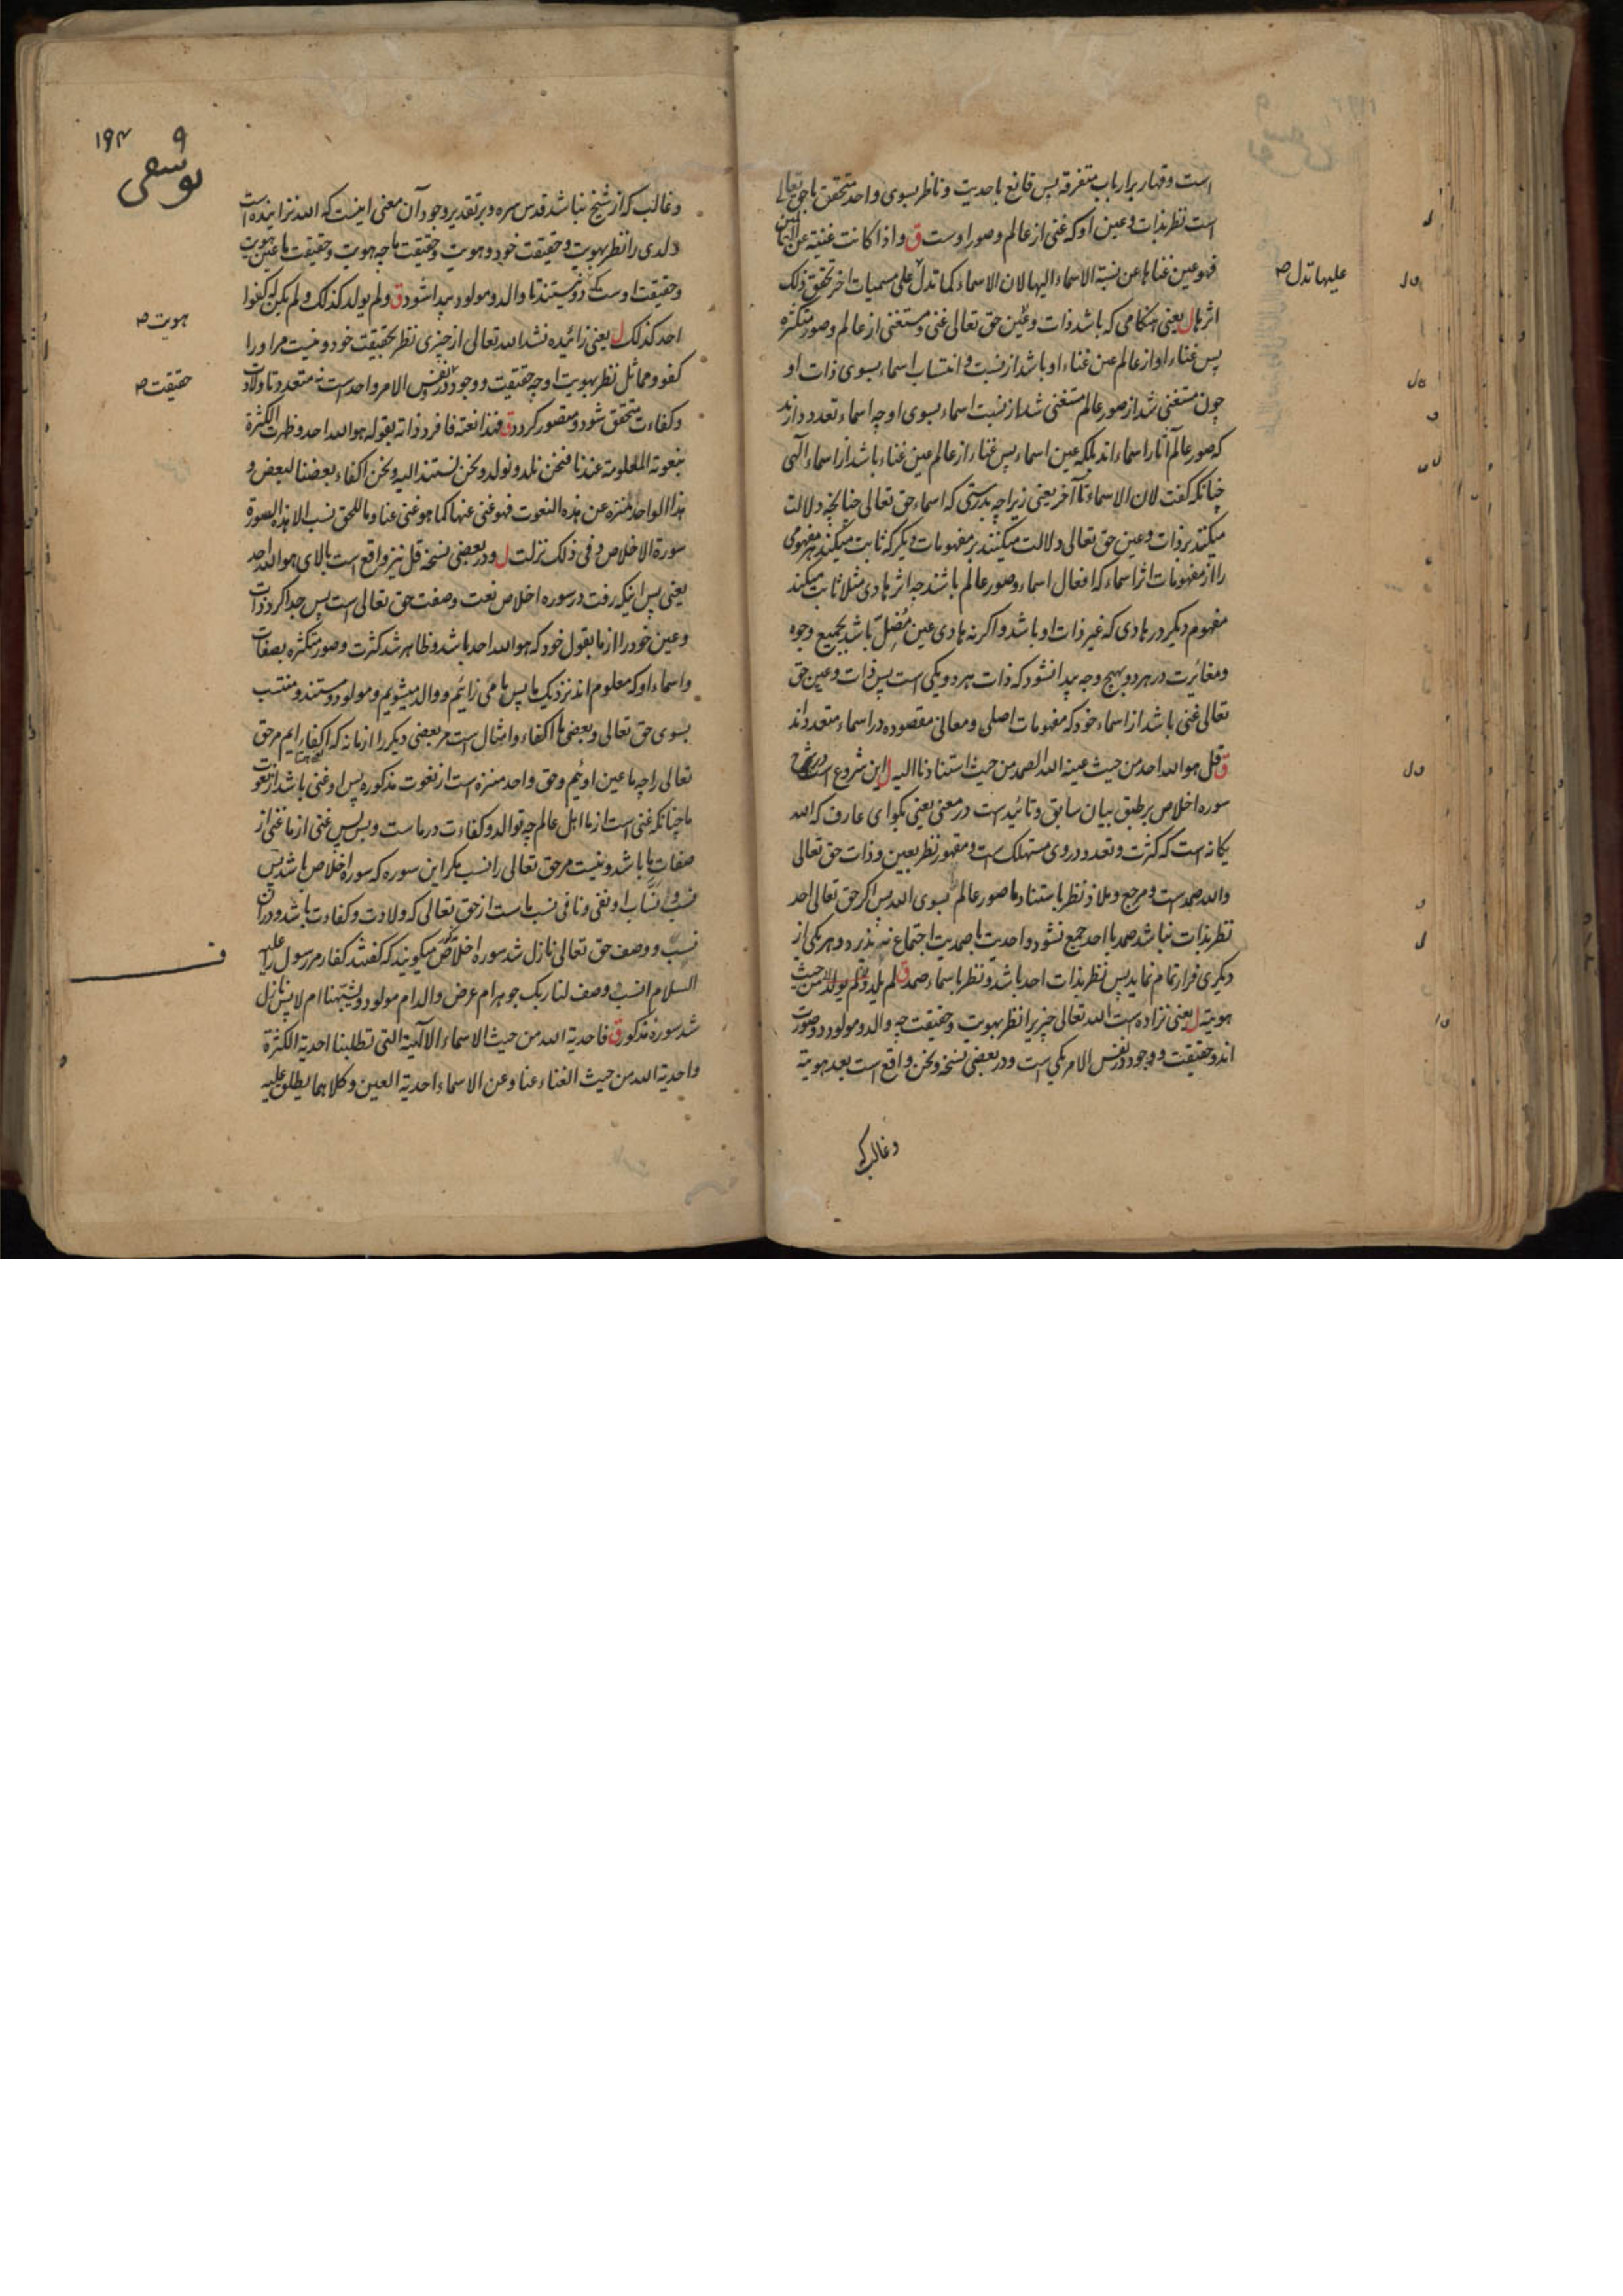 است و قهار بر ارباب متفرقه پس قانع باحدیت و ناظر بسوی واحد متحقق باحق تعالی
است نظر بذات و عین او که غنی از عالم و صور اوست ق و اذا کانت غنیة عن العالمین
فهو عین غناها عن نسبة الاسماء الیها لان الاسماء کما تدل علی مسمیات اخر تحقق ذلک
علیها تدل صح
اثرها ل یعنی هنگامی که باشد ذات و عین حق تعالی غنی و مستغنی از عالم و صور متکثره
پس غناء او از عالم عین غناء او باشد از نسبت و انتساب اسماء بسوی ذات او
چون مستغنی شد از صور عالم مستغنی شد از نسبت اسماء بسوی او چه اسماء تعدد دارند
که صور عالم آثار اسماء اند بلکه عین اسماء پس غناء از عالم عین غناء باشد از اسماء الهی
چنانکه گفت لان الاسماء تا آخر یعنی زیرا چه بدرستی که اسماء حق تعالی چنانچه دلالت
میکنند بر ذات و عین حق تعالی دلالت میکنند بر مفهومات دیگر که ثابت میکند هر مفهومی
را از مفهومات اثر اسماء که افعال اسماء و صور عالم باشند چه اثر هادی مثلا ثابت میکند
مفهوم دیگر در هادی که غیر ذات او باشد و اگر نه هادی عین مضل باشد بجمیع وجوه
و مغائرت در هر دو بهیچ وجه پیدا نشود که ذات هر دو یکی است پس ذات و عین حق
تعالی غنی باشد از اسماء خود که مفهومات اصلی و معانی مقصوده در اسماء متعدد اند
ق قل هو الله احد من حیث عینه الله الصمد من حیث استنادنا الیه ل این شروع است در شرح
سوره اخلاص بر طبق بیان سابق و تائید است در معنی یعنی بگو ای عارف که الله
یگانه است که کثرت و تعدد در وی مستهلک است و مقهور نظر بعین و ذات حق تعالی
و الله صمد است و مرجع و ملاذ نظر باستناد ما صور عالم بسوی الله پس اگر حق تعالی احد
نظر بذات نباشد صمد با احد جمع نشود و احدیت با صمدیت اجتماع نه پذیرد و هر یکی از
دیگری فرار تمام نماید پس نظر بذات احد باشد و نظر باسماء صمد ق لم یلد و لم یولد من حیث
هویته ل یعنی نزاده است الله تعالی چیزیرا نظر بهویت و حقیقت چه والد و مولود دو صورت
اند و حقیقت و وجود در نفس الامر یکی است و در بعضی نسخه و نحن واقع است بعد هویته
و غالب که
۱۹۴
و غالب که از شیخ نباشد قدس سره و بر تقدیر وجود آن معنی اینست که الله نزاینده است
ولدی را نظر بهویت و حقیقت خود و هویت و حقیقت ما چه هویت و حقیقت ما عین هویت
و حقیقت اوست که دو نیستند تا والد و مولود پیدا شود ق و لم یولد کذلک و لم یکن له کفوا
هویت صح
احد کذلک ل یعنی زائیده نشد الله تعالی از چیزی نظر بحقیقت خود و نیست مر او را
کفو و مماثل نظر بهویت او چه حقیقت و وجود در نفس الامر واحد است نه متعدد تا ولادت
حقیقت صح
و کفاءت متحقق شود و مقصور گردد ق فهذا نعته فافرد ذاته بقوله هو الله احد و ظهرت الکثرة
بنعوته المعلومة عندنا فنحن نلد و نولد و نحن نستند الیه و نحن اکفاء بعضنا لبعض و
هذا الواحد منزه عن هذه النعوت فهو غنی عنها کما هو غنی عنا و ما للحق نسب الا هذه السورة
سورة الاخلاص و فی ذلک نزلت ل و در بعضی نسخه قل نیز واقع است بالای هو الله احد
یعنی پس اینکه رفت در سوره اخلاص نعت و صفت حق تعالی است پس جدا کرد ذات
و عین خود را از ما بقول خود که هو الله احد باشد و ظاهر شد کثرت و صور متکثره بصفات
و اسماء او که معلوم اند نزدیک ما پس ما می زائیم و والد میشویم و مولود و مستند و منتسب
بسوی حق تعالی و بعضی ما اکفاء و امثال است مر بعضی دیگر را از ما نه که اکفاء ایم مر حق
تعالی را چه ما عین اوئیم و حق واحد منزه است از نعوت مذکوره پس او غنی باشد از نعوت
ما چنانکه غنی است از ما اهل عالم چه توالد و کفاءت در ماست و بس پس غنی از ما غنی از
صفات ما باشد و نیست مر حق تعالی را نسب مگر این سوره که سوره اخلاص باشد پس
نسب و انتساب او نفی و نافی نسب ماست از حق تعالی که ولادت و کفاءت باشد و در آن
نسب و وصف حق تعالی نازل شد سوره اخلاص میگویند که گفتند کفار مر رسول را علیه
السلام انسب و وصف لنا ربک جوهر ام عرض والد ام مولود و یشبهنا ام لا پس نازل
شد سوره مذکور ق فاحدیة الله من حیث الاسماء الالهیة التی تطلبنا احدیة الکثرة
و احدیة الله من حیث الغناء عنا و عن الاسماء احدیة العین و کلاهما یطلق علیه